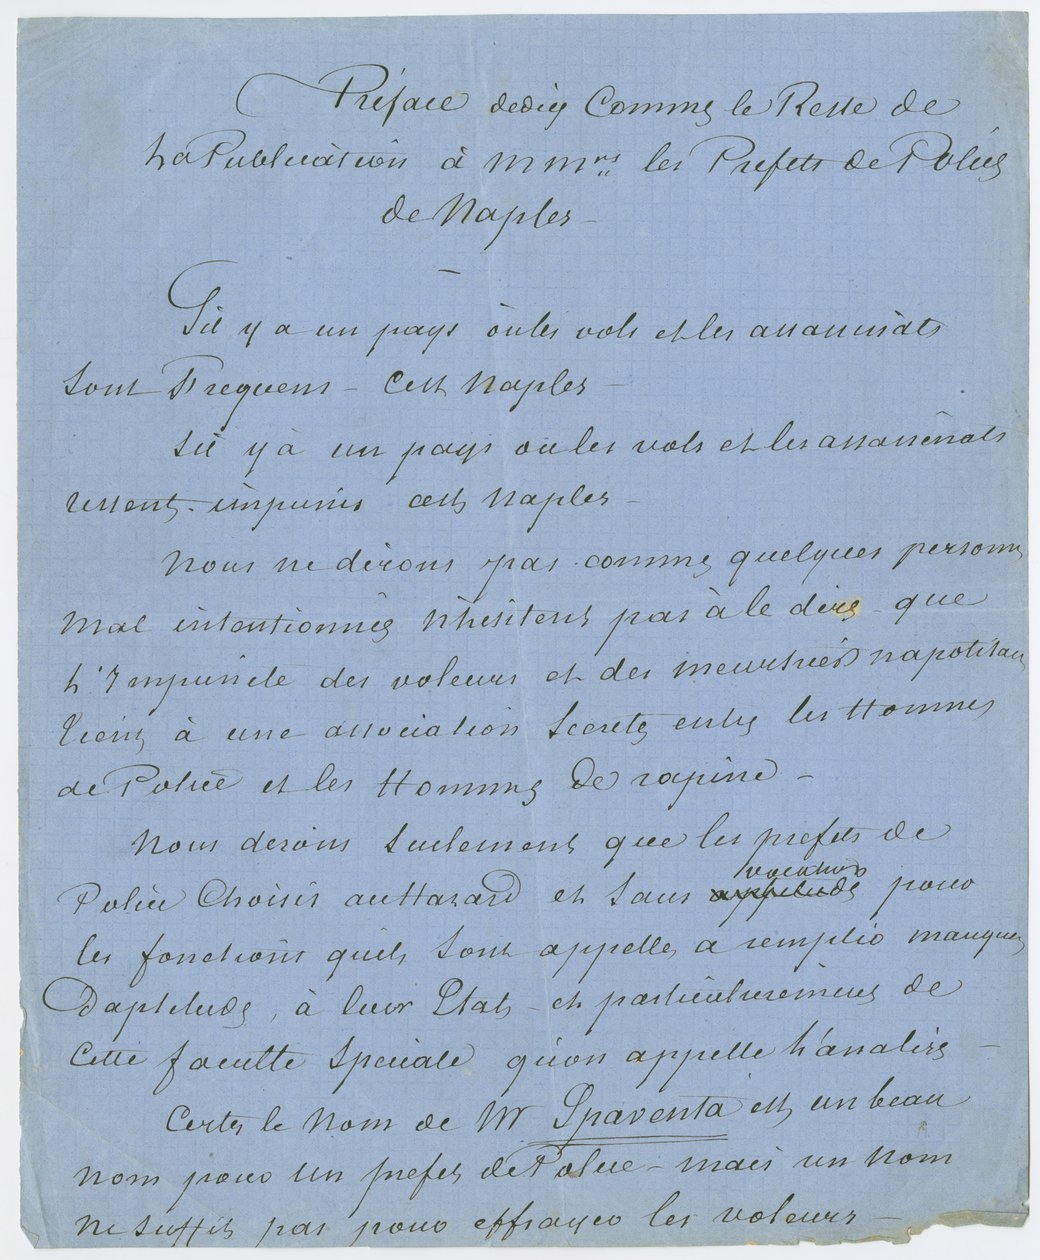 Préface dediée Comme le Reste de
La Publication à MMrs les Prefets de Police
de Naples –
S'il y a un pays où les vols et les assassinats
sont Frequens – Cest Naples –
sil y à un pays ou les vols et les assassinats
restent impunis cest Naples –
Nous ne dirons pas comme quelques personnes
mal intentionnées n'hésitent pas à le dire – que
L'Impunité des voleurs et des meurtriers napolitains
tient à une association Secrete entre les Hommes
de Police et les Hommes de rapine –
Nous dirons seulement que les prefets de
vocation
Police Choisis au Hazard et sans aptitude pour
les fonctions quils sont appelles a remplir manquent
Daptitude, à leur Etat – et particulierement de
Cette faculte speciale qu'on appelle L'analise –
Certes le nom de Mr Spaventa est un beau
nom pour un prefet de Police – mais un nom
ne suffit pas pour effrayer les voleurs –